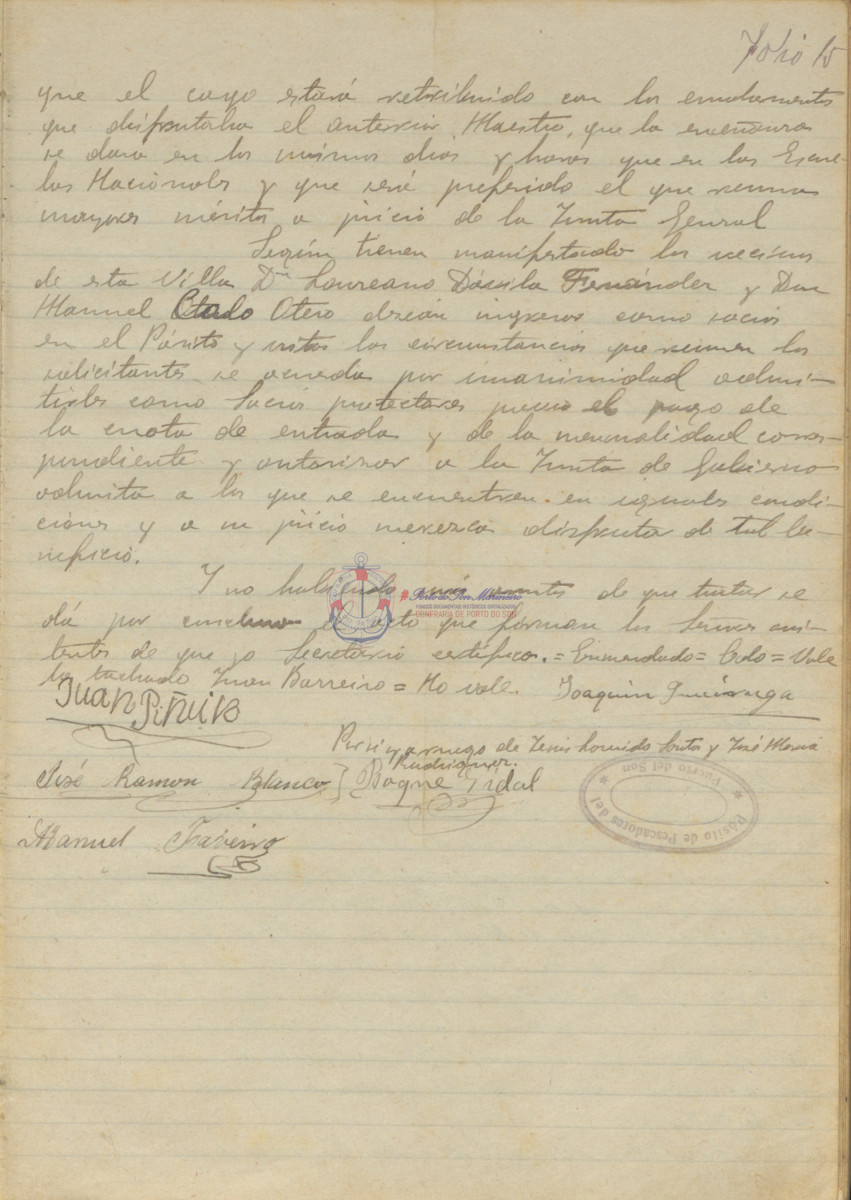 Folio 15
que el cargo estará retribuido con los emolumentos
que disfrutaba el anterior Maestro, que la enseñanza
se dara en los mismos dias y horas que en las Escue-
las Nacionales y que será preferido el que reuna
mayores méritos a juicio de la Junta General
Según tienen manifestado los vecinos
de esta Villa Dn Laureano Dávila Fernández y Don
Manuel Otero desean ingresar como socios
en el Pósito y vistas las circunstancias que reunen los
solicitantes se acuerda por unanimidad admi-
tirles como Socios protectores previo el pago de
la cuota de entrada y de la mensualidad corres-
pondiente y autorizar a la Junta de Gobierno
admita a los que se encuentren en iguales condi-
ciones y a su juicio merezca disfrutar de tal be-
neficio.
Y no habiendo más asuntos de que tratar se
dá por el acto que forman los Senores asis-
tentes de que yo Secretario certifico. = Enmendado = = Vale
lo tachado Juan Barreiro = No vale. Joaquin
Juan Piñeiro
Por si y a ruego de Jesús Lourido y José Maria
Rodriguez.
José Ramon Blanco Roque Vidal
Manuel
Porto do Son Mariñeiro
FONDOS DOCUMENTAIS HISTÓRICOS DIXITALIZADOS
CONFRARÍA DE PORTO DO SON
* Pósito de Pescadores del *
Puerto del Son